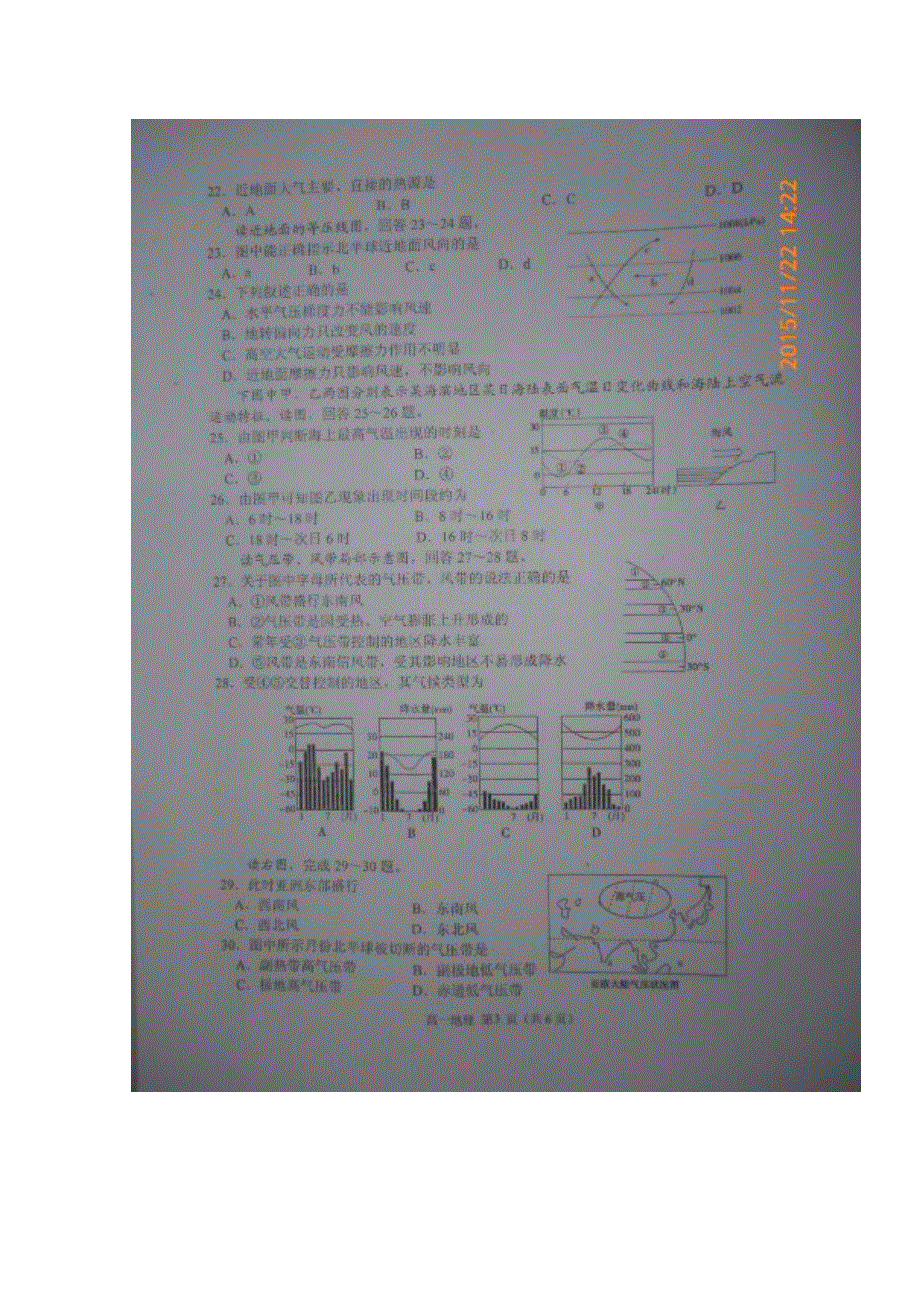 22．近地面大气主要、直接的热源是
A．A B．B C．C D．D
读近地面的等压线图，回答23～24题。
23．图中能正确指示北半球近地面风向的是
A．a B．b C．c D．d
24．下列叙述正确的是
A．水平气压梯度力不能影响风速
B．地转偏向力只改变风的速度
C．高空大气运动受摩擦力作用不明显
D．近地面摩擦力只影响风速，不影响风向
1008(hPa)
1006
1004
1002
a b c d
2015/11/22 14:22
下图中甲、乙两图分别表示某海滨地区某日海陆表面气温日变化曲线和海陆上空气流
运动特征。读图，回答25～26题。
25．由图甲判断海上最高气温出现的时刻是
A．① B．②
C．③ D．④
26．由图甲可知图乙现象出现时间段约为
A．6时～18时 B．8时～16时
C．18时～次日6时 D．16时～次日8时
温度(℃)
30
15
0
① ② ③ ④
0 6 12 18 24(时)
甲
海风
乙
读气压带、风带局部示意图，回答27～28题。
27．关于图中字母所代表的气压带、风带的说法正确的是
A．①风带盛行东南风
B．②气压带是因受热，空气膨胀上升形成的
C．常年受③气压带控制的地区降水丰富
D．⑤风带是东南信风带，受其影响地区不易形成降水
28．受④⑤交替控制的地区，其气候类型为
60°N
30°N
0°
30°S
气温(℃) 降水量(mm) 气温(℃) 降水量(mm)
30 15 0 -15 -30 -45 -60
30 20 10 0 -10
240 180 120 60 0
30 15 0 -15 -30 -45 -60
600 500 400 300 200 100 0
1 7 (月) 1 7 (月) 7 (月) 1 7 (月)
A B C D
读右图，完成29～30题。
29．此时亚洲东部盛行
A．西南风 B．东南风
C．西北风 D．东北风
30．图中所示月份北半球被切断的气压带是
A．副热带高气压带 B．副极地低气压带
C．极地高气压带 D．赤道低气压带
高气压
亚欧大陆气压状况图
高一地理 第3页（共6页）